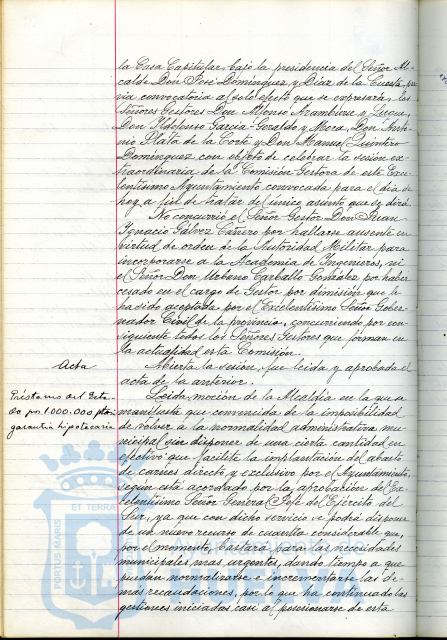 la Casa Capitular, bajo la presidencia del Señor Al-
calde Don José Domínguez y Díaz de la Cuesta, pre-
via convocatoria al solo efecto que se expresará, los
Señores Gestores Don Alfonso Aramburu y Luque,
Don Ildefonso García-Geraldo y Mora, Don Anto-
nio Plata de la Corte y Don Manuel Quintero
Domínguez con objeto de celebrar la sesión ex-
traordinaria de la Comisión Gestora de este Exce-
lentísimo Ayuntamiento convocada para el día de
hoy a fin de tratar del único asunto que se dirá.
No concurrió el Señor Gestor Don Juan
Ignacio Gálvez Cañero por hallarse ausente en
virtud de orden de la Autoridad Militar para
incorporarse a la Academia de Ingenieros, ni
el Señor Don Urbano Carballo González por haber
cesado en el cargo de Gestor por dimisión que le
ha sido aceptada por el Excelentísimo Señor Gober-
nador Civil de la provincia, concurriendo por con-
siguiente todos los Señores Gestores que forman en
la actualidad esta Comisión.
Acta
Abierta la sesión, fue leída y aprobada el
acta de la anterior.
Préstamo del Esta-
do por 1.000.000 ptas
garantía hipotecaria
Leída moción de la Alcaldía en la que se
manifiesta que convencida de la imposibilidad
de volver a la normalidad administrativa mu-
nicipal sin disponer de una cierta cantidad en
efectivo que facilite la implantación del abasto
de carnes directo y exclusivo por el Ayuntamiento,
según está acordado por la aprobación del Ex-
celentísimo Señor General Jefe del Ejército del
Sur, ya que con dicho servicio se podrá disponer
de un nuevo recurso de cuantía considerable que,
por el momento, bastará para las necesidades
municipales mas urgentes, dando tiempo a que
puedan normalizarse e incrementarse las de-
más recaudaciones, por lo que ha continuado las
gestiones iniciadas casi al posesionarse de esta
PORTUS MARIS
ET TERRAE